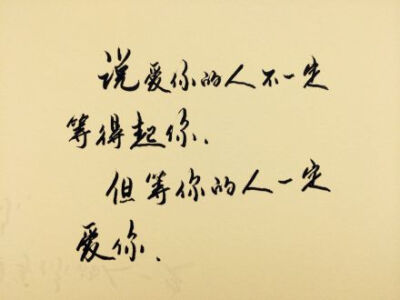 说爱你的人不一定
等得起你、
但等你的人一定
爱你、